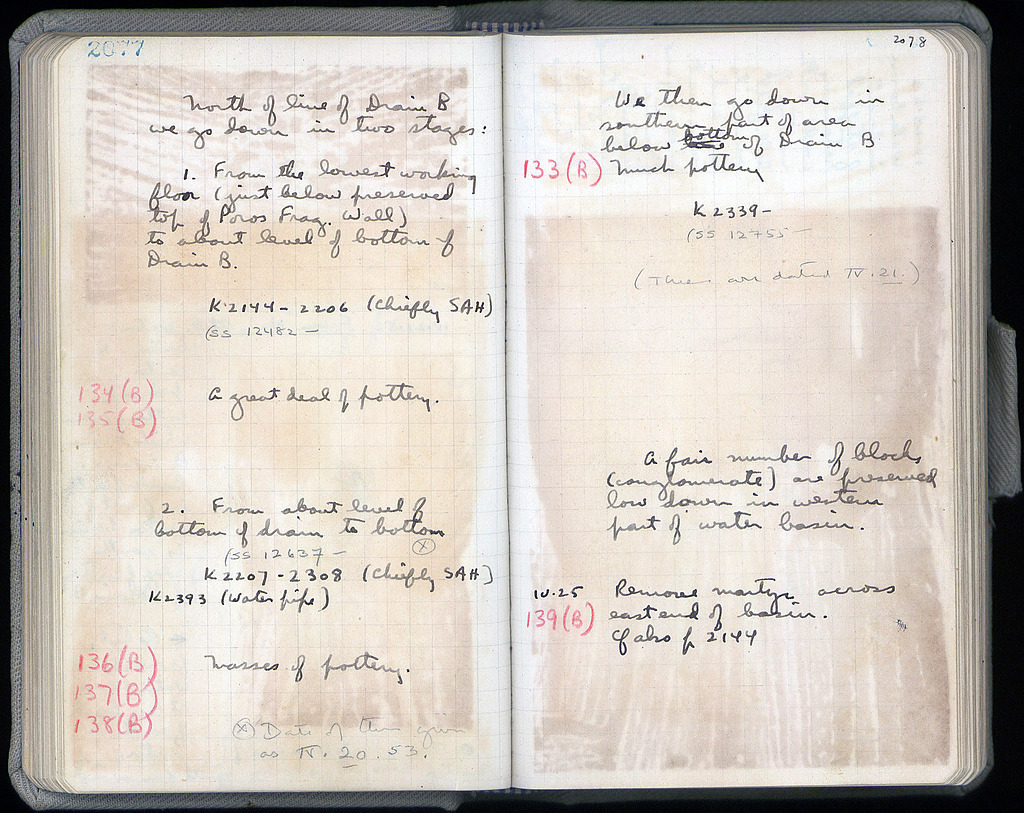 2077
North of line of Drain B
we go down in two stages:
1. From the lowest working
floor (just below preserved
top of Poros Frag. Wall)
to about level of bottom of
Drain B.
K2144-2206 (Chiefly SAH)
(SS 12482 —
134(B) A great deal of pottery.
135(B)
2. From about level of
bottom of drain to bottom
(SS 12637 — (X)
K2207-2308 (Chiefly SAH)
K2393 (Water pipe)
136(B) Masses of pottery.
137(B)
138(B)
(X) Date of them given
as IV.20.53.
2078
We then go down in
southern part of area
below bottom of Drain B
133(B) Much pottery
K2339-
(SS 12755 —
(These are dated IV.21.)
A fair number of blocks
(conglomerate) are preserved
low down in western
part of water basin.
IV.25 Remove martyr across
139(B) east end of basin.
Cf also p 2144